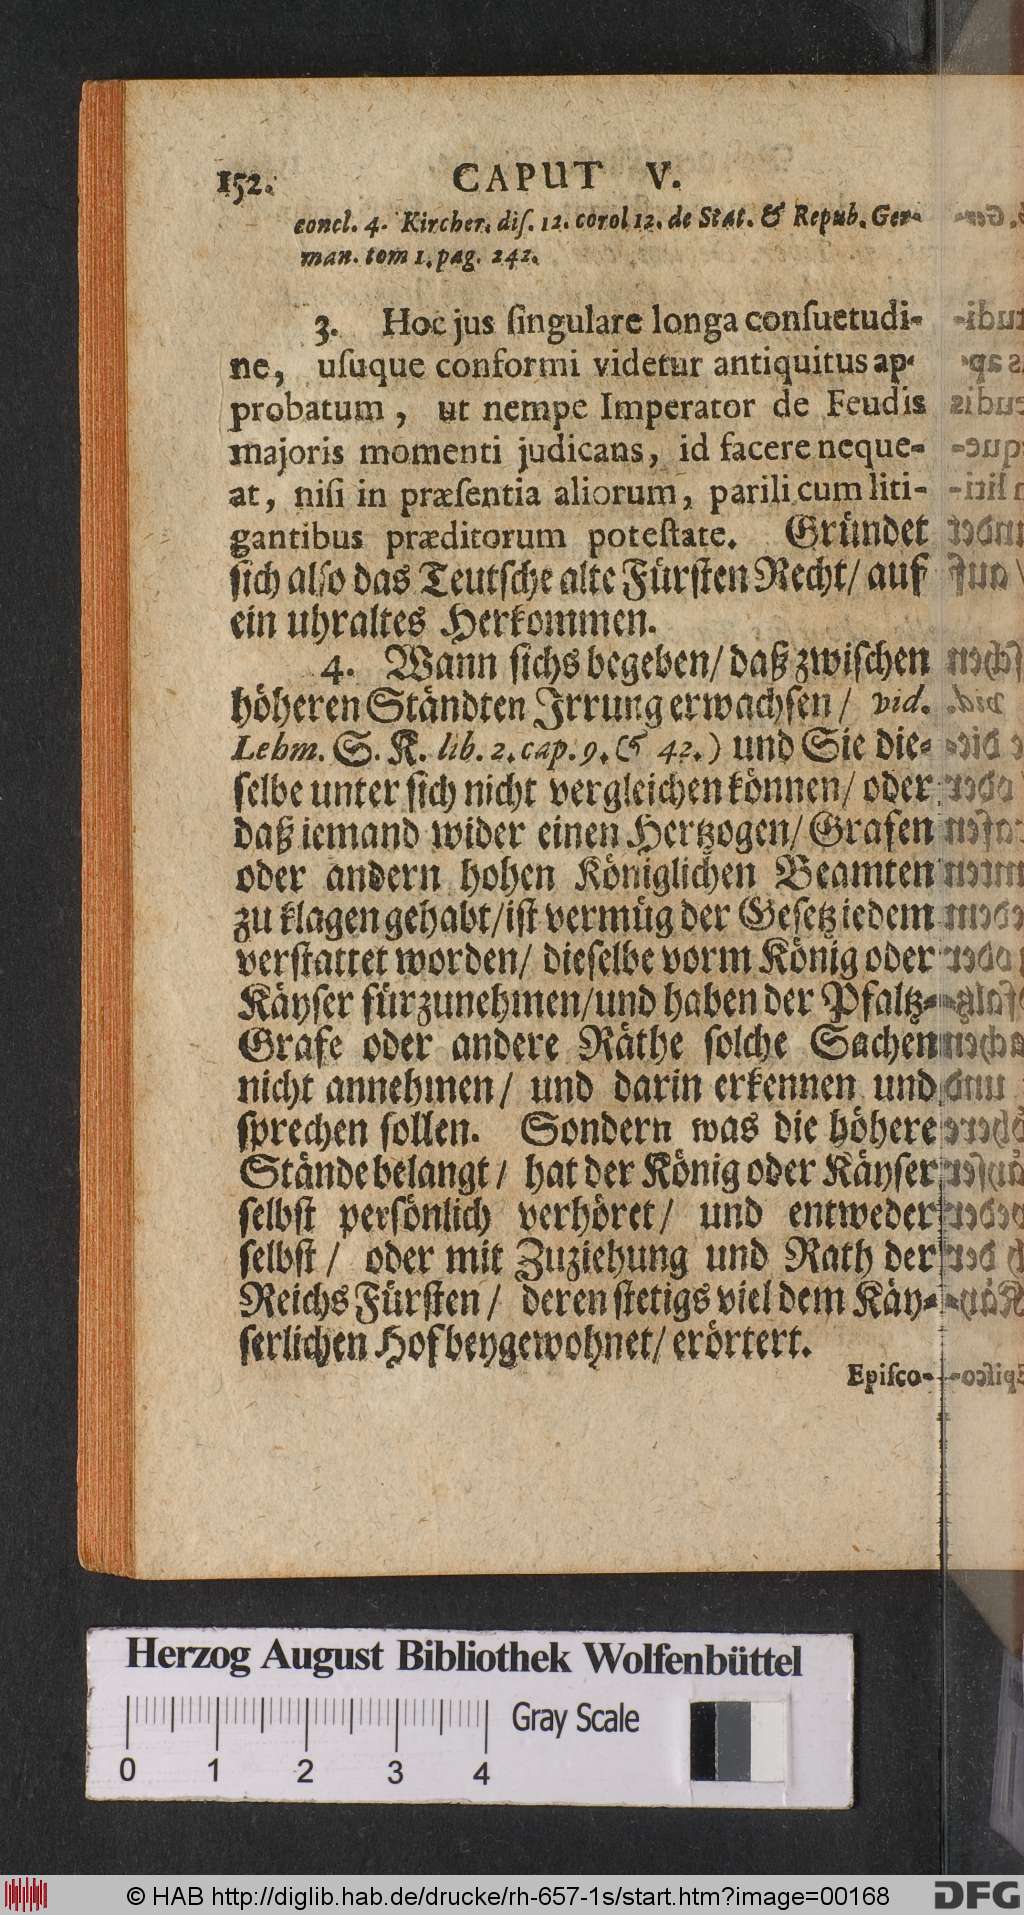 152. CAPUT V.
concl. 4. Kircher. diſ. 12. corol 12. de Stat. & Repub. Ger-
man. tom 1. pag. 242.
3. Hoc jus ſingulare longa conſuetudi-
ne, uſuque conformi videtur antiquitus ap-
probatum, ut nempe Imperator de Feudis
majoris momenti judicans, id facere neque-
at, niſi in præſentia aliorum, parili cum liti-
gantibus præditorum poteſtate. Gründet
ſich alſo das Teutſche alte Fürſten Recht/ auf
ein uhraltes Herkommen.
4. Wann ſichs begeben/ daß zwiſchen
höheren Ständten Irrung erwachſen/ vid.
Lehm. S. K. lib. 2. cap. 9. & 42.) und Sie die-
ſelbe unter ſich nicht vergleichen können/ oder
daß iemand wider einen Hertzogen/ Grafen
oder andern hohen Königlichen Beamten
zu klagen gehabt/ iſt vermüg der Geſetz iedem
verſtattet worden/ dieſelbe vorm König oder
Käyſer fürzunehmen/ und haben der Pfaltz-
Grafe oder andere Räthe ſolche Sachen
nicht annehmen/ und darin erkennen und
ſprechen ſollen. Sondern was die höhere
Stände belangt/ hat der König oder Käyſer
ſelbſt perſönlich verhöret/ und entweder
ſelbſt/ oder mit Zuziehung und Rath der
Reichs Fürſten/ deren ſtetigs viel dem Käy-
ſerlichen Hof beygewohnet/ erörtert.
Epiſco-
Herzog August Bibliothek Wolfenbüttel
Gray Scale
0 1 2 3 4
© HAB http://diglib.hab.de/drucke/rh-657-1s/start.htm?image=00168
DFG